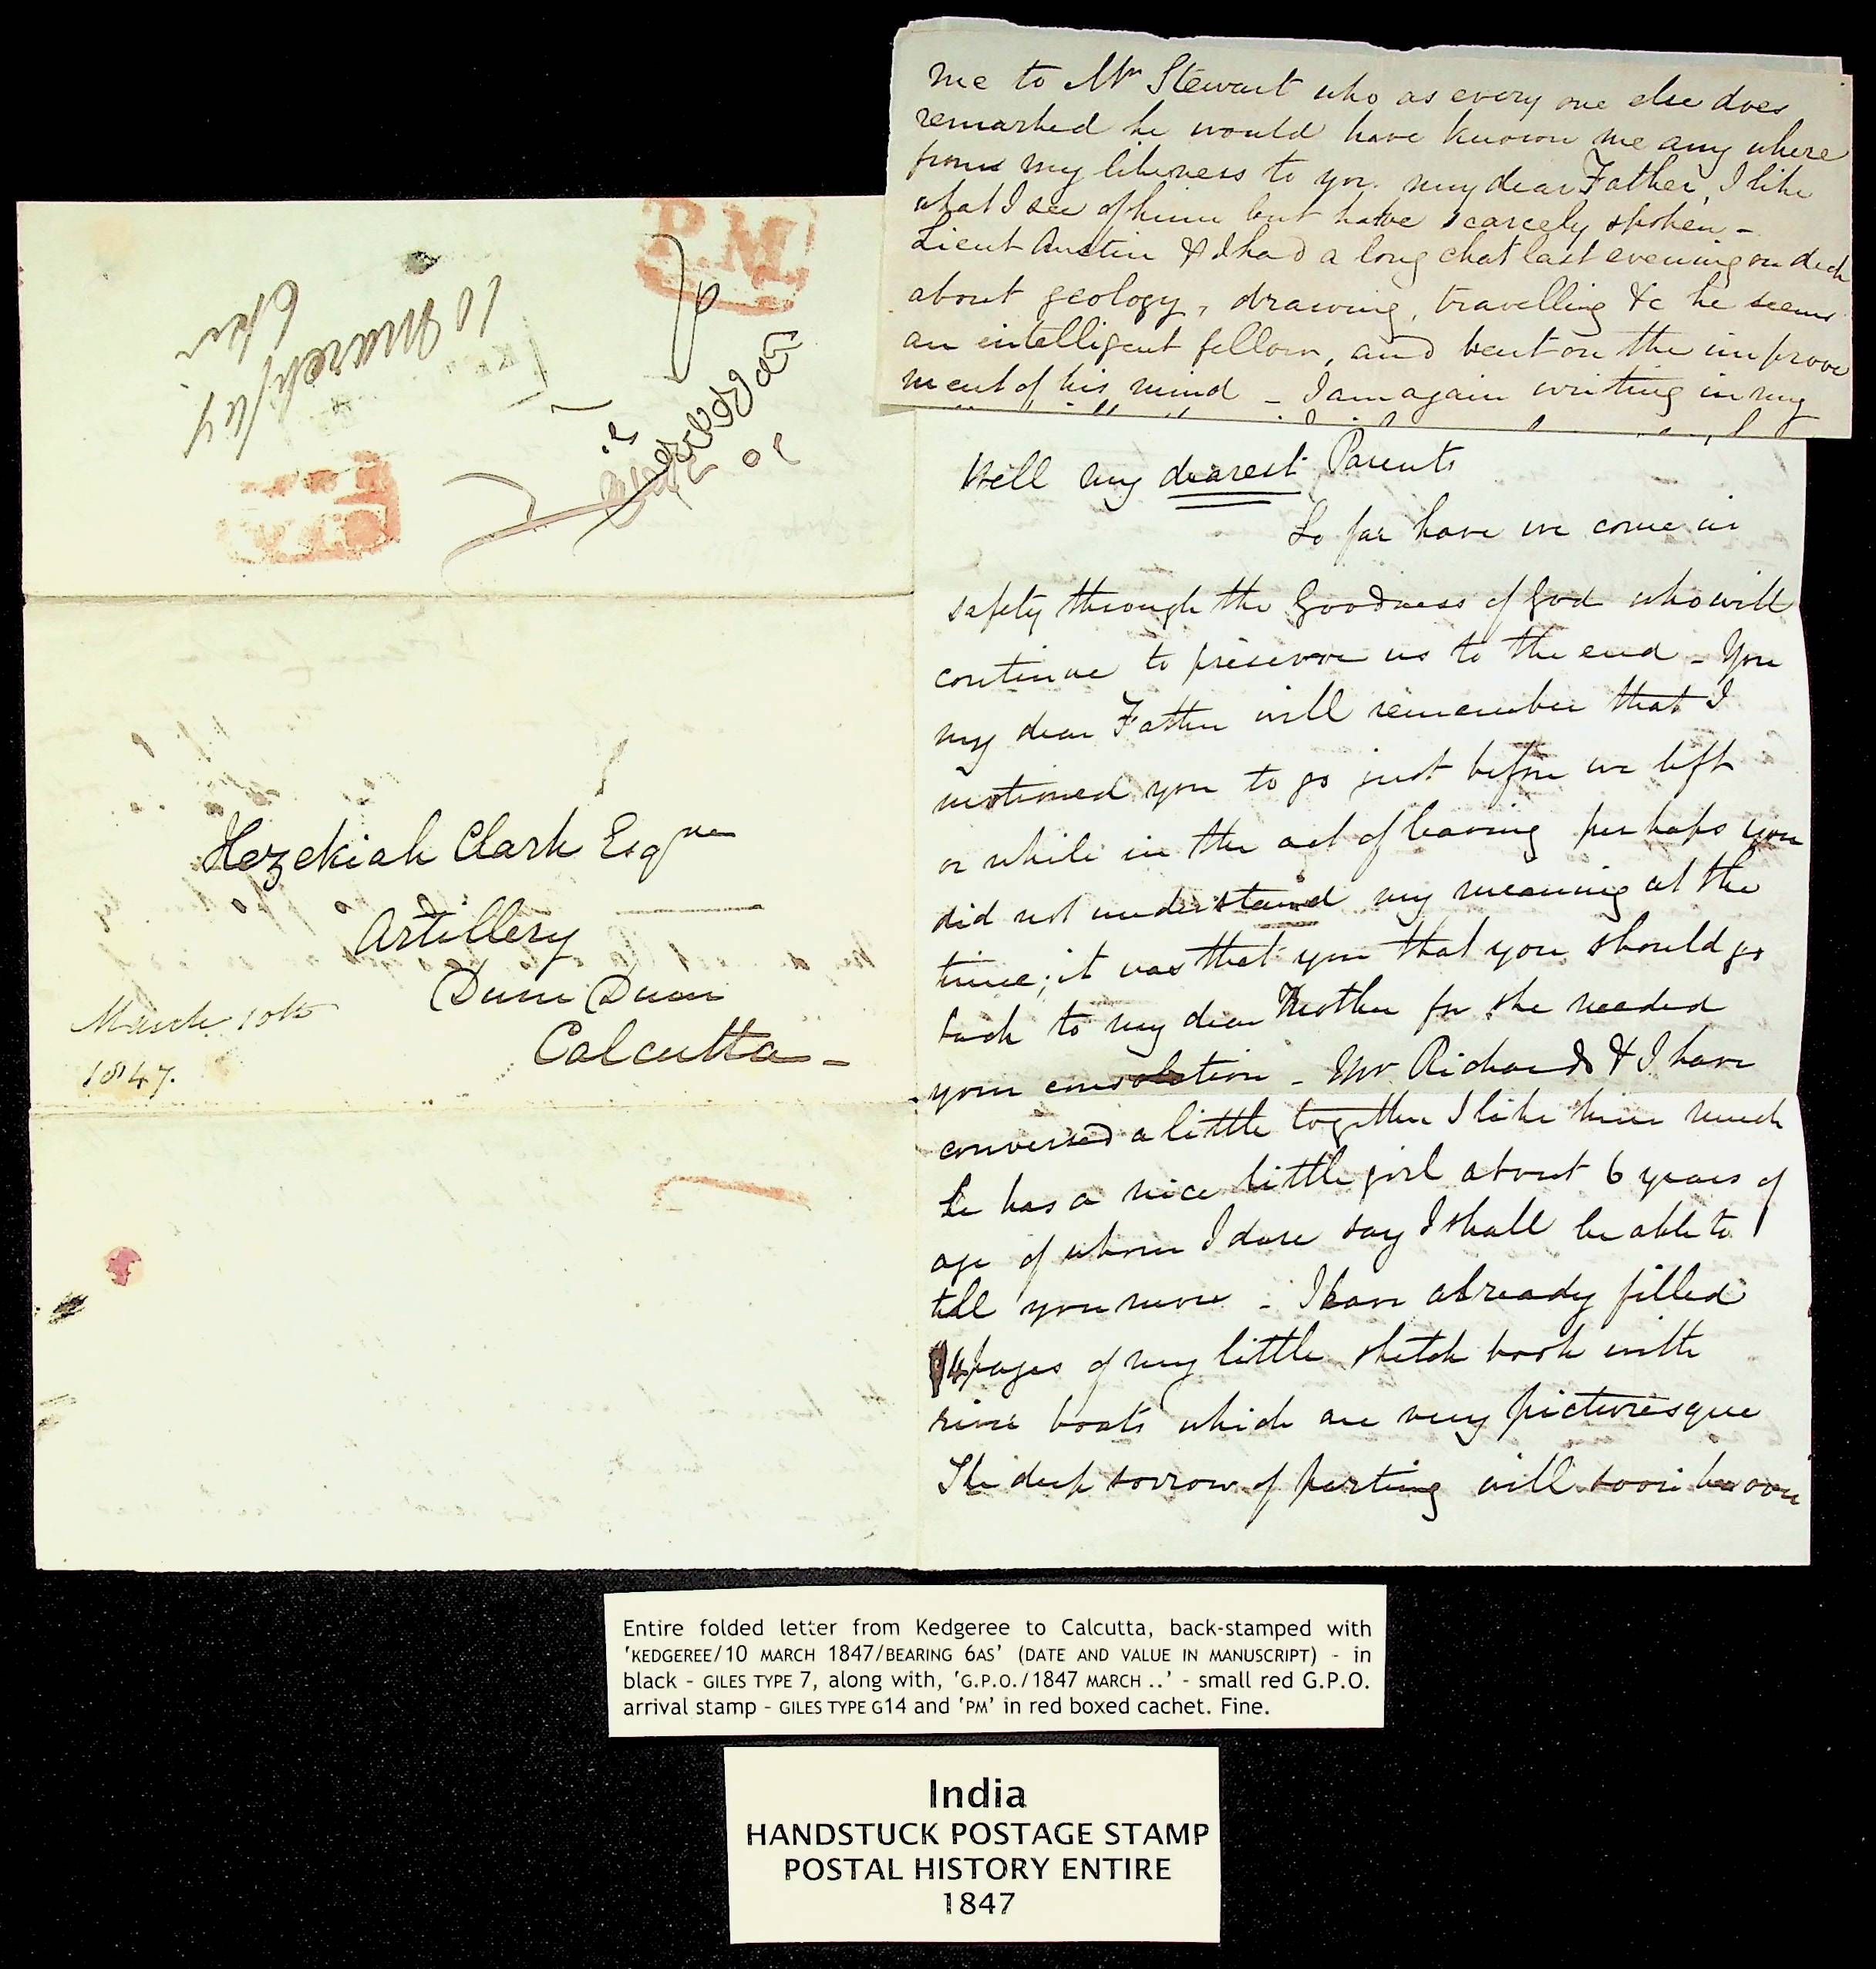 me to Mr Stewart who as every one else does
remarked he would have known me any where
from my likeness to you my dear Father, I like
what I see of him but have scarcely spoken -
Lieut Austin & I had a long chat last evening on deck
about geology, drawing, travelling &c he seems
an intelligent fellow, and bent on the improve
ment of his mind - I am again writing in my
Well my dearest Parents
So far have we come in
safety through the Goodness of God who will
continue to preserve us to the end - You
my dear Father will remember that I
motioned you to go just before we left
or while in the act of leaving perhaps you
did not understand my meaning at the
time; it was that you that you should go
back to my dear Mother for she needed
your consolation - Mr Richards & I have
conversed a little together I like him much
he has a nice little girl about 6 years of
age of whom I dare say I shall be able to
tell you more - I have already filled
4 pages of my little sketch book with
river boats which are very picturesque
The deep sorrow of parting will soon be over
P.M.
10 March/47
Hezekiah Clark Esqre
Artillery
Dum Dum
Calcutta -
March 10th
1847.
Entire folded letter from Kedgeree to Calcutta, back-stamped with
'KEDGEREE/10 MARCH 1847/BEARING 6AS' (DATE AND VALUE IN MANUSCRIPT) - in
black - GILES TYPE 7, along with, 'G.P.O./1847 MARCH ..' - small red G.P.O.
arrival stamp - GILES TYPE G14 and 'PM' in red boxed cachet. Fine.
India
HANDSTUCK POSTAGE STAMP
POSTAL HISTORY ENTIRE
1847